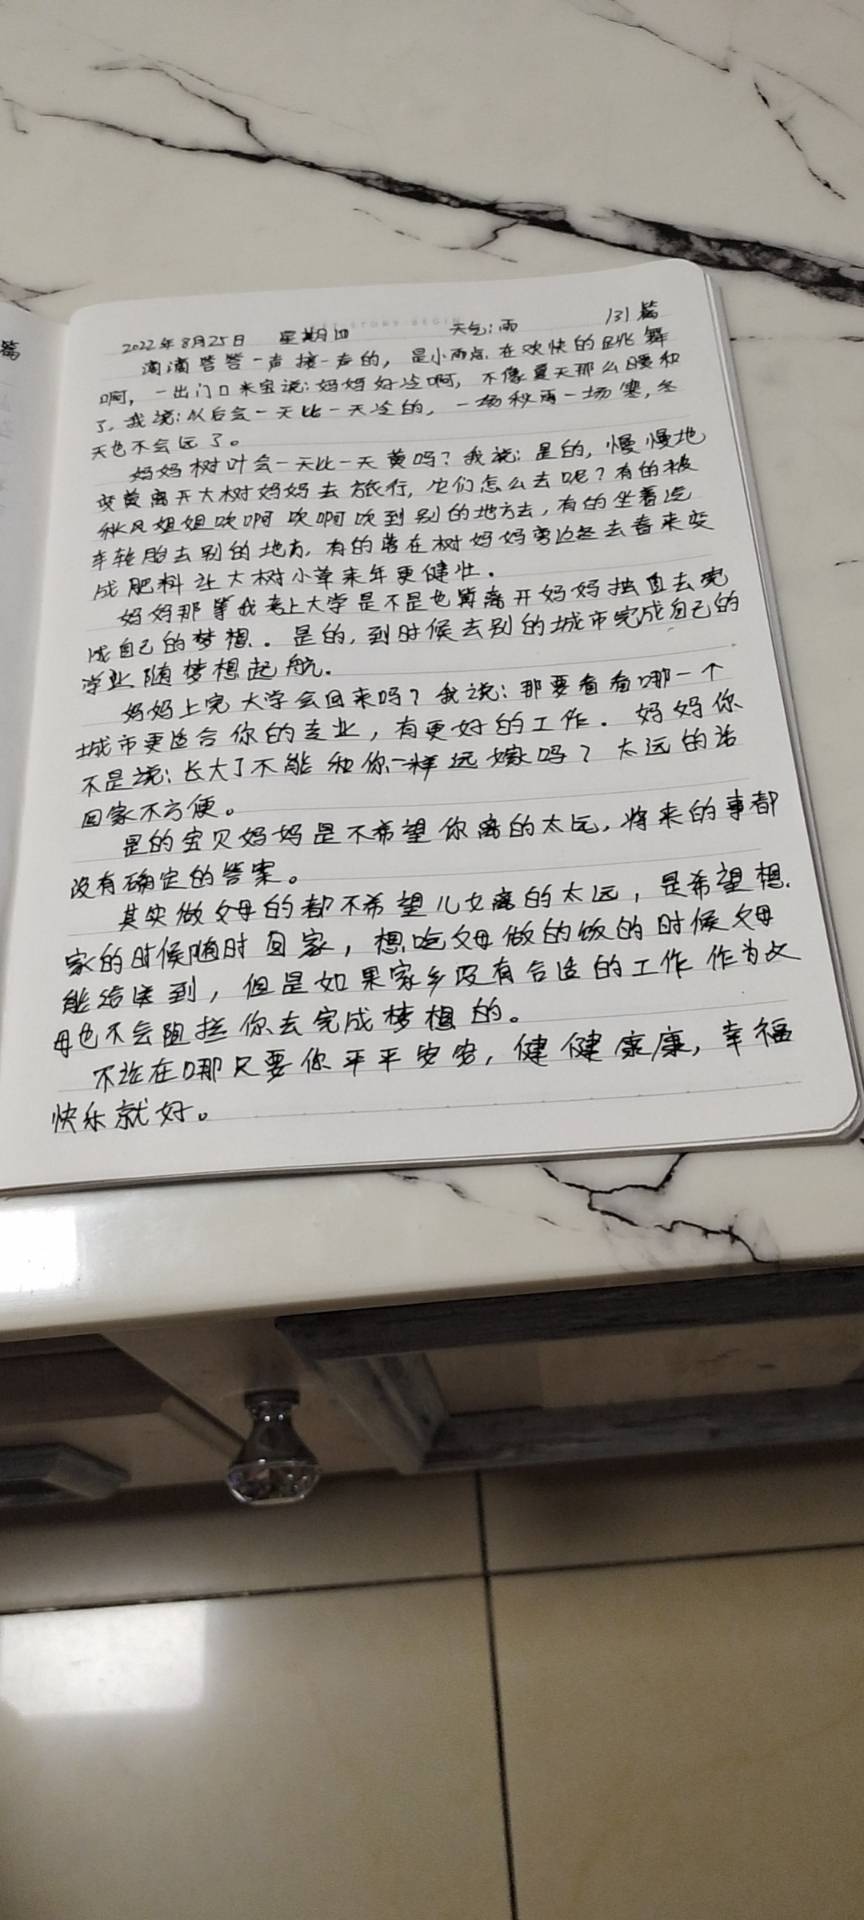 篇
2022年8月25日 星期四 天气:雨 131篇
滴滴答答一声接一声的，是小雨点在欢快的跳舞
啊，一出门口米宝说:妈妈好冷啊，不像夏天那么暖和
了，我说:从后会一天比一天冷的，一场秋雨一场寒，冬
天也不会远了。
妈妈树叶会一天比一天黄吗？我说:是的，慢慢地
变黄离开大树妈妈去旅行，它们怎么去呢？有的被
秋风姐姐吹啊吹啊吹到别的地方去，有的坐着
车轮胎去别的地方，有的落在树妈妈旁边 去春来变
成肥料让大树小草来年更健壮.
妈妈那等我考上大学是不是也算离开妈妈独自去完
成自己的梦想.。是的，到时候去别的城市完成自己的
学业随梦想起航.
妈妈上完大学会回来吗？我说:那要看看哪一个
城市更适合你的专业，有更好的工作.妈妈你
不是说:长大了不能和你一样远嫁吗？太远的话
回家不方便。
是的宝贝妈妈是不希望你离的太远，将来的事都
没有确定的答案。
其实做父母的都不希望儿女离的太远，是希望想
家的时候随时回家，想吃父母做的饭的时候父母
能给送到，但是如果家乡没有合适的工作作为父
母也不会阻拦你去完成梦想的。
不论在哪只要你平平安安，健健康康，幸福
快乐就好。